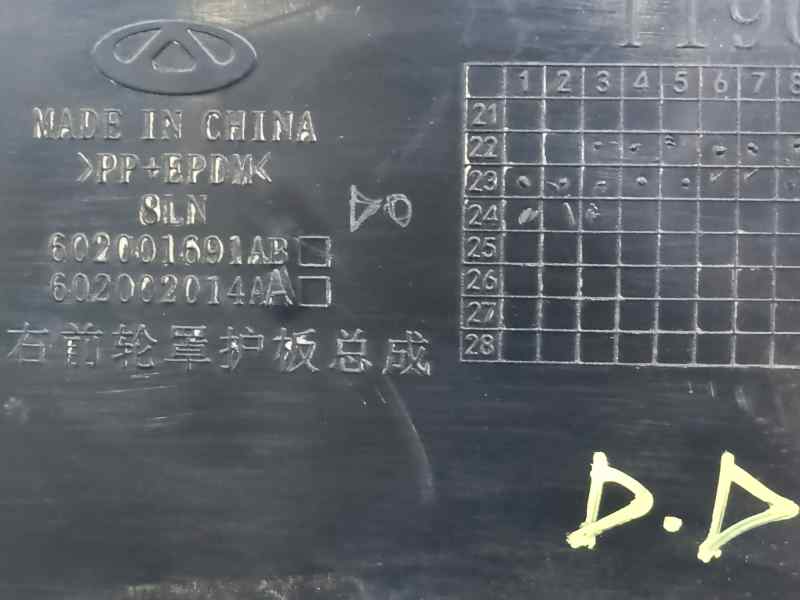 119
MADE IN CHINA
>PP+EPDM<
81LN
602001691AB
602002014AA
右前轮罩护板总成
1 2 3 4 5 6 7 8
21
22
23
24
25
26
27
28
D.D